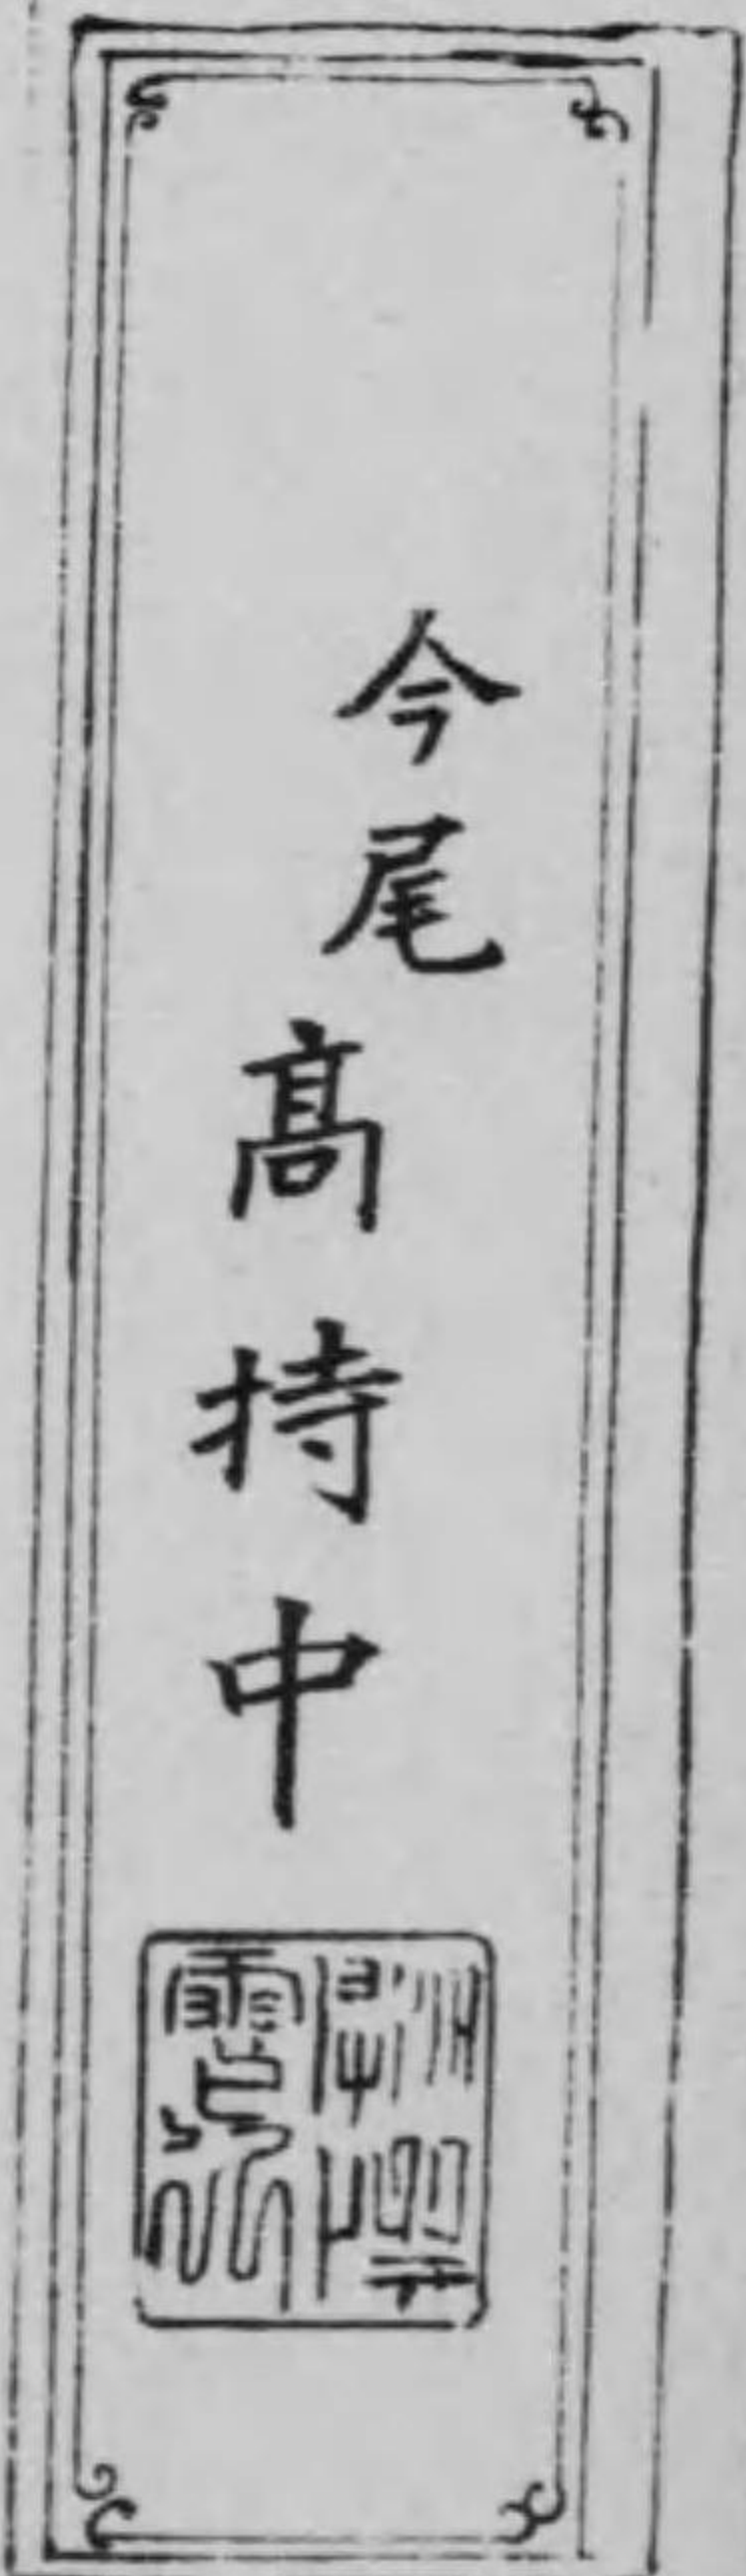 今尾髙持中